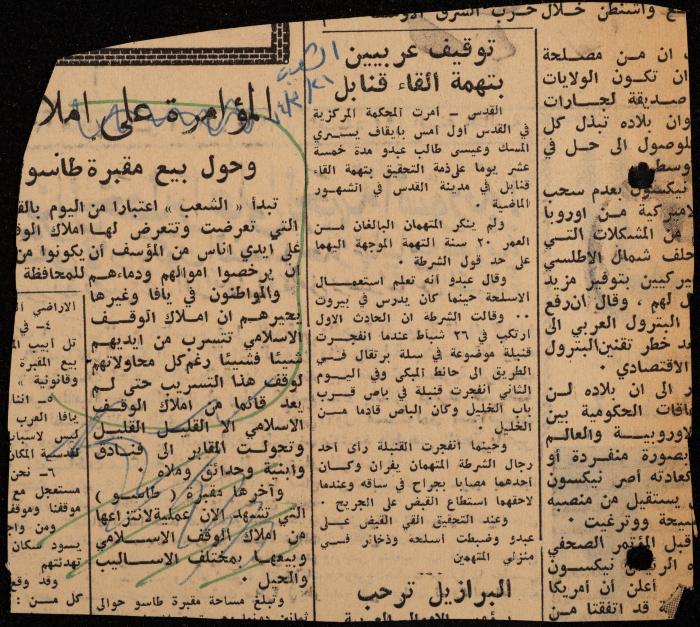 واشنطن خلال حرب الشرق
الشعب
المؤامرة على املا
وحول بيع مقبرة طاسو
تبدأ « الشعب » اعتبارا من اليوم بالف
التي تعرضت وتتعرض لها املاك الوقـ
على ايدي اناس من المؤسف أن يكونوا من
ان يرخصوا اموالهم ودماءهم للمحافظة
والمواطنون في يافا وغيرها
يحيرهم ان املاك الوقف
الاسلامي تتسرب من ايديهم
شيئا فشيئا رغم كل محاولاتهم
لوقف هذا التسريب حتى لم
يعد قائما من املاك الوقف
الاسلامي الا القليل القليل
وتحولت المقابر الى فنادق
وأبنية وحدائق وملاه ٠
وآخرها مقبرة ( طاسو )
التي تشهد الان عملية لانتزاعها
من املاك الوقف الاسلامي
وبيعها بمختلف الاساليب
والحيل ٠
وتبلغ مساحة مقبرة طاسو حوالي
الاراضي
٤ـ في
تل أبيب
بيع المقبرة
وقانونية »
٥ـ اننا
يافا العرب
ليس لاسباب
لقدسية المكان
٦ـ نحن
مستعجل مع
موقفنا وموقف
ومن واج
يسود سكان
تهدئتهم
وقد وقع
كل من :
توقيف عربيين
بتهمة القاء قنابل
القدس ـ أمرت المحكمة المركزية
في القدس أول أمس بإيقاف يسري
المسك وعيسى طالب عبدو مدة خمسة
عشر يوما على ذمة التحقيق بتهمة القاء
قنابل في مدينة القدس في الشهور
الماضية ٠
ولم ينكر المتهمان البالغان من
العمر ٢٠ سنة التهمة الموجهة اليهما
على حد قول الشرطة ٠
وقال عبدو أنه تعلم استعمال
الاسلحة حينما كان يدرس في بيروت
٠٠ وقالت الشرطة ان الحادث الاول
ارتكب في ٢٦ شباط عندما انفجرت
قنبلة موضوعة في سلة برتقال في
الطريق الى حائط المبكى وفي اليوم
الثاني انفجرت قنبلة في باص قرب
باب الخليل وكان الباص قادما من
الخليل ٠
وحينما انفجرت القنبلة رأى أحد
رجال الشرطة المتهمان يفران وكان
أحدهما مصابا بجراح في ساقه وعندما
لاحقهما استطاع القبض على الجريح ٠
وعند التحقيق القي القبض على
عبدو وضبطت أسلحه وذخائر في
منزلي المتهمين
البرازيل ترحب
ان من مصلحة
ان تكون الولايات
صديقة لجارات
وان بلاده تبذل كل
للوصول الى حل في
وسط
نيكسون بعدم سحب
اميركية من اوروبا
من المشكلات التي
حلف شمال الاطلسي
يركيين بتوفير مزيد
ل لهم ، وقال ان رفع
البترول العربي الى
عد خطر تقنين البترول
الاقتصادي ٠
الى ان بلاده لن
اقات الحكومية بين
لاوروبية والعالم
بصورة منفردة أو
كعادته أصر نيكسون
يستقيل من منصبه
يحة ووترغيت ٠
قبل المؤتمر الصحفي
ه الرئيس نيكسون
أعلن أن أمريكا
قد اتفقتا من